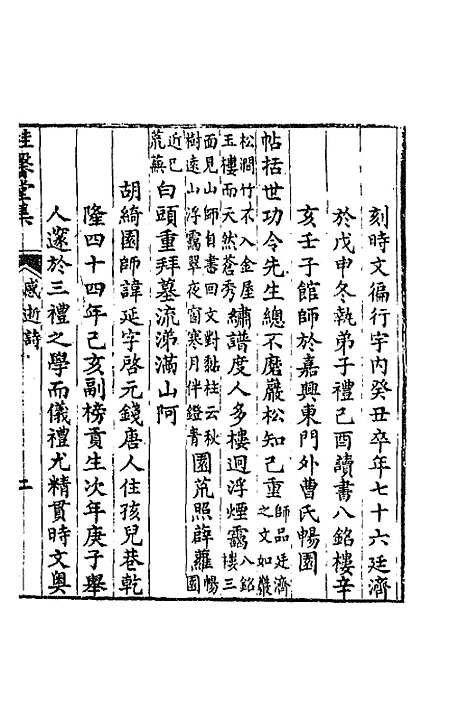 刻時文徧行宇內癸丑卒年七十六廷濟
於戊申冬執弟子禮己酉讀書八銘樓辛
亥壬子館師於嘉興東門外曹氏暢園
帖括世功令先生總不磨巖松知己重師品廷濟之文如巖
松澗竹不入金屋玉樓而天然蒼秀繡譜度人多樓迥浮煙靄八銘樓三
面見山師自書回文對黏柱云秋樹遠山浮靄翠夜窗寒月伴鐙青園荒照薜蘿暢園
近已荒蕪白頭重拜墓流涕滿山阿
胡綺園師諱延字啓元錢唐人住孩兒巷乾
隆四十四年己亥副榜貢生次年庚子舉
人邃於三禮之學而儀禮尤精貫時文奥
桂馨堂集
感逝詩